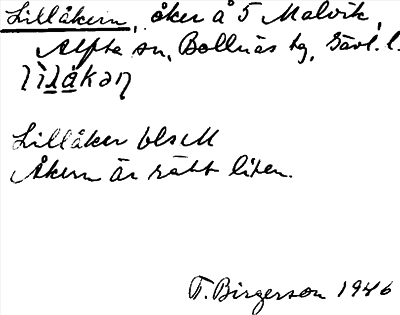 Lillåkern, åker å 5 Malvik,
Alfta sn, Bollnäs tg, Gävl. l.
Lillåker bls M
Åkern är rätt liten.
T. Birgerson 1946